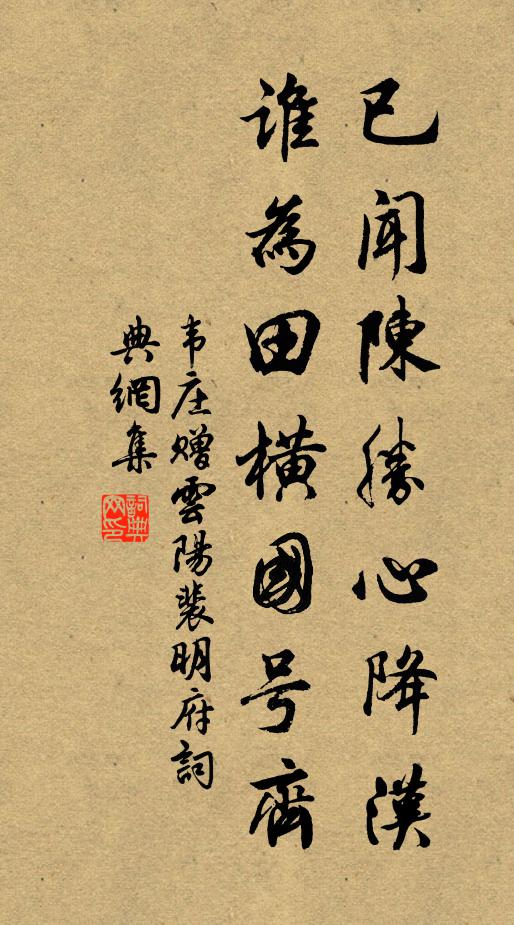 已闻陳勝心降漢
谁為田横國号齊
韦庄赠雲陽裴明府詞
典網集
詞典网印